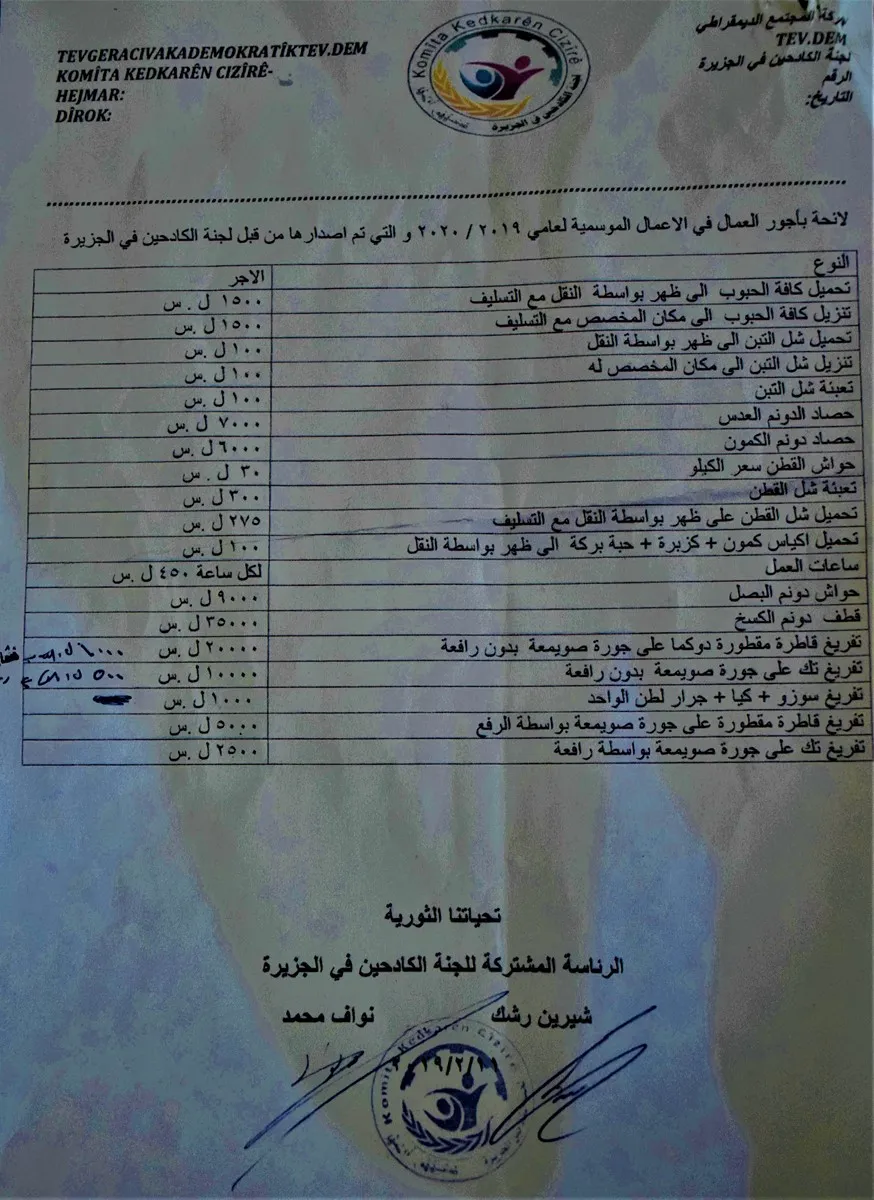 TEVGERACIVAKADEMOKRATÎKTEV.DEM
KOMÎTA KEDKARÊN CIZÎRÊ-
HEJMAR:
DÎROK:
Komîta Kedkarên Cizîrê
لجنة الكادحين في الجزيرة
المجتمع الديمقراطي
TEV.DEM
لجنة الكادحين في الجزيرة
الرقم
التاريخ:
لائحة بأجور العمال في الاعمال الموسمية لعامي ٢٠١٩ / ٢٠٢٠ و التي تم اصدارها من قبل لجنة الكادحين في الجزيرة
النوع الاجر
تحميل كافة الحبوب الى ظهر بواسطة النقل مع التسليف ١٥٠٠ ل . س
تنزيل كافة الحبوب الى مكان المخصص مع التسليف ١٥٠٠ ل .س
تحميل شل التبن الى ظهر بواسطة النقل ١٠٠ ل .س
تنزيل شل التبن الى مكان المخصص له ١٠٠ ل .س
تعبئة شل التبن ١٠٠ ل .س
حصاد الدونم العدس ٧٠٠٠ ل .س
حصاد دونم الكمون ٦٠٠٠ ل .س
حواش القطن سعر الكيلو ٣٠ ل . س
تعبئة شل القطن ٣٠٠ ل .س
تحميل شل القطن على ظهر بواسطة النقل مع التسليف ٢٧٥ ل .س
تحميل اكياس كمون + كزبرة + حبة بركة الى ظهر بواسطة النقل ١٠٠ ل .س
ساعات العمل لكل ساعة ٤٥٠ ل .س
حواش دونم البصل ٩٠٠٠ ل .س
قطف دونم الكسخ ٣٥٠٠٠ ل .س
تفريغ قاطرة مقطورة دوكما على جورة صويمعة بدون رافعة ٢٠٠٠٠ ل .س
تفريغ تك على جورة صويمعة بدون رافعة ١٠٠٠٠ ل .س
تفريغ سوزو + كيا + جرار لطن الواحد ١٠٠٠ ل .س
تفريغ قاطرة مقطورة على جورة صويمعة بواسطة الرفع ٥٠٠٠ ل .س
تفريغ تك على جورة صويمعة بواسطة رافعة ٢٥٠٠ ل .س
تحياتنا الثورية
الرئاسة المشتركة للجنة الكادحين في الجزيرة
شيرين رشك نواف محمد
Komîta Kedkarên Cizîrê